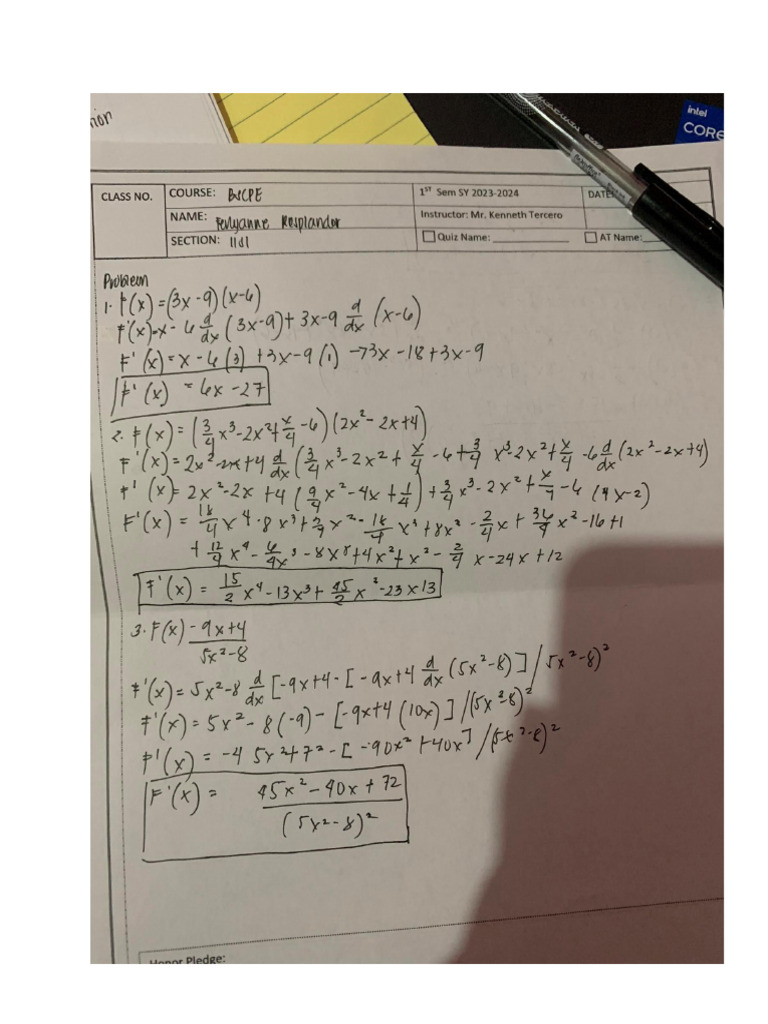 non
intel
CORE
CLASS NO.
COURSE: BSCPE
1ST Sem SY 2023-2024
DATE
NAME:
Instructor: Mr. Kenneth Tercero
SECTION: 11d1
Quiz Name:
AT Name:
Problem
1. f(x) = (3x-9)(x-6)
F'(x)=x-6 d/dx (3x-9)+3x-9 d/dx (x-6)
F'(x) = x-6(3) +3x-9(1) → 3x-18+3x-9
F'(x) = 6x-27
2. f(x) = (3/4 x³-2x²+x/4-6)(2x²-2x+4)
F'(x) = 2x²-2x+4 d/dx (3/4 x³-2x²+x/4-6+3/4 x³-2x²+x/4-6 d/dx (2x²-2x+4)
F'(x) = 2x²-2x+4 (9/4 x²-4x+1/4)+3/4 x³-2x²+x/4-6 (4x-2)
F'(x) = 18/4 x⁴-8x³+2/4 x²-18/4 x³+8x²-2/4 x+36/4 x²-16+1
+12/4 x⁴-6/4x³-8x³+4x²+x²-2/4 x-24x+12
F'(x) = 15/2 x⁴-13x³+45/2 x²-23x13
3. F(x) -9x+4
5x²-8
F'(x) = 5x²-8 d/dx [-9x+4-[-9x+4 d/dx (5x²-8)]/5x²-8)²
F'(x) = 5x²-8(-9)-[-9x+4(10x)]/(5x²-8)²
F'(x) = -45x²+72-[-90x²+40x]/(5x²-8)²
F'(x) = 45x²-40x+72
(5x²-8)²
Honor Pledge: